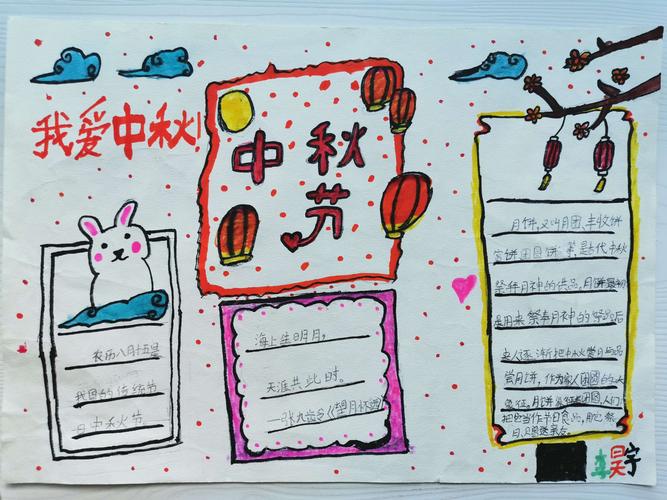 我爱中秋
中秋
节
农历八月十五是
我国的传统节
日中秋节。
海上生明月，
天涯共此时。
—张九龄《望月怀远》
月饼，又叫月团、丰收饼
宫饼团圆饼等是古代中秋
祭拜月神的供品，月饼最初
是用来祭奉月神的祭品后
来人逐渐把中秋赏月与品
尝月饼，作为家人团圆的一大
象征，月饼
把它当作节日食品，用它祭
月、
李昊宇